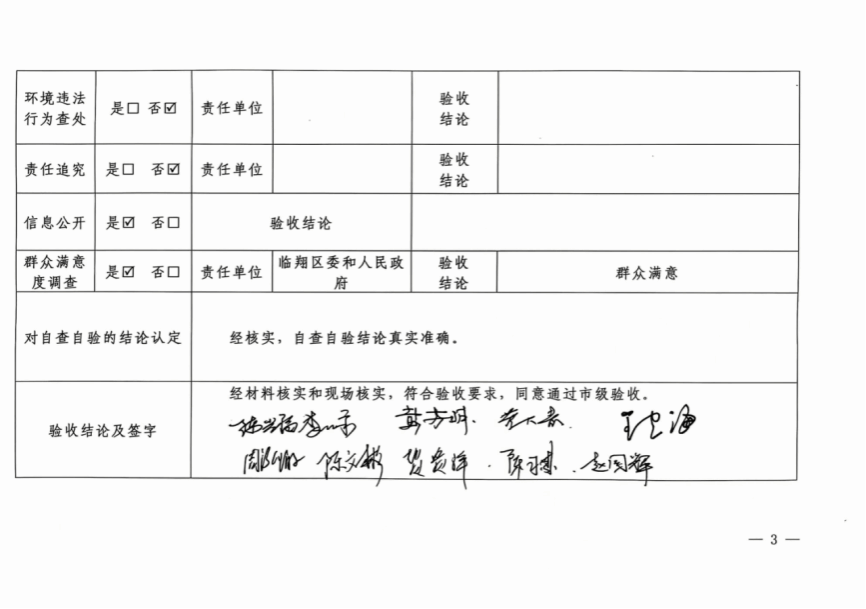 环境违法行为查处 是□ 否☑ 责任单位 验收结论
责任追究 是□ 否☑ 责任单位 验收结论
信息公开 是☑ 否□ 验收结论
群众满意度调查 是☑ 否□ 责任单位 临翔区委和人民政府 验收结论 群众满意
对自查自验的结论认定 经核实，自查自验结论真实准确。
验收结论及签字 经材料核实和现场核实，符合验收要求，同意通过市级验收。
— 3 —